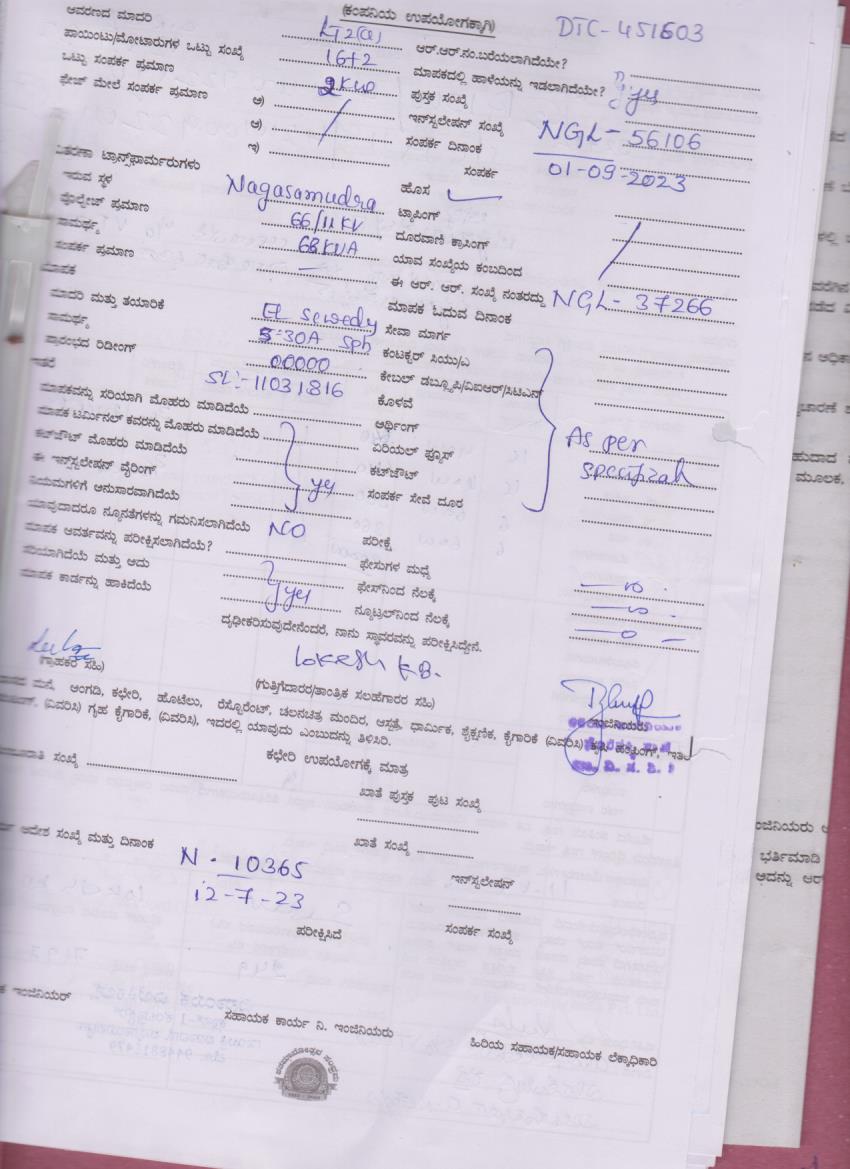 (ಕಂಪನಿಯ ಉಪಯೋಗಕ್ಕಾಗಿ)
DTC-451603
ಆವರಣದ ಮಾದರಿ LT2(a) ಆರ್.ಆರ್.ನಂ.ಬರೆಯಲಾಗಿದೆಯೇ?
ಪಾಯಿಂಟು/ಮೋಟಾರುಗಳ ಒಟ್ಟು ಸಂಖ್ಯೆ 16+2 ಮಾಪಕದಲ್ಲಿ ಹಾಳೆಯನ್ನು ಇಡಲಾಗಿದೆಯೇ? yes
ಒಟ್ಟು ಸಂಪರ್ಕ ಪ್ರಮಾಣ 2KW ಪುಸ್ತಕ ಸಂಖ್ಯೆ
ಫೇಜ್ ಮೇಲೆ ಸಂಪರ್ಕ ಪ್ರಮಾಣ ಅ) ಇನ್‌ಸ್ಟಲೇಷನ್ ಸಂಖ್ಯೆ NGL-56106
ಆ) ಸಂಪರ್ಕ ದಿನಾಂಕ 01-09-2023
ಇ) ಸಂಪರ್ಕ
ವಿತರಣಾ ಟ್ರಾನ್ಸ್‌ಫಾರ್ಮರುಗಳು
ಇರುವ ಸ್ಥಳ Nagasamudra ಹೊಸ
ವೋಲ್ಟೇಜ್ ಪ್ರಮಾಣ 66/11KV ಟ್ಯಾಪಿಂಗ್
ಸಾಮರ್ಥ್ಯ 63KVA ದೂರವಾಣಿ ಕ್ರಾಸಿಂಗ್
ಸಂಪರ್ಕ ಪ್ರಮಾಣ ಯಾವ ಸಂಖ್ಯೆಯ ಕಂಬದಿಂದ
ಮಾಪಕ ಈ ಆರ್. ಆರ್. ಸಂಖ್ಯೆ ನಂತರದ್ದು NGL-37266
ಮಾಪಕ ಓದುವ ದಿನಾಂಕ
ಮಾದರಿ ಮತ್ತು ತಯಾರಿಕೆ El sewedy ಸೇವಾ ಮಾರ್ಗ
ಸಾಮರ್ಥ್ಯ 5-30A sph ಕಂಟಕ್ಟರ್ ಸಿಯು/ಎ
ಪ್ರಾರಂಭದ ರಿಡೀಂಗ್ 00000 ಕೇಬಲ್ ಡಬ್ಲ್ಯೂಪಿ/ಏಐಆರ್/ಸಿಟಿಎಸ್
ಇತರೆ SL:-11031816 ಕೊಳವೆ
ಮಾಪಕವನ್ನು ಸರಿಯಾಗಿ ಮೊಹರು ಮಾಡಿದೆಯೆ ಆರ್ಥಿಂಗ್
ಮಾಪಕ ಟರ್ಮಿನಲ್ ಕವರನ್ನು ಮೊಹರು ಮಾಡಿದೆಯೆ ಏರಿಯಲ್ ಫ್ಯೂಸ್ As per
ಕಟ್‌ಔಟ್ ಮೊಹರು ಮಾಡಿದೆಯೆ ಕಟ್‌ಔಟ್
ಈ ಇನ್‌ಸ್ಟಲೇಷನ್ ವೈರಿಂಗ್ yes ಸಂಪರ್ಕ ಸೇವೆ ದೂರ
ನಿಯಮಗಳಿಗೆ ಅನುಸಾರವಾಗಿದೆಯೆ
ಯಾವುದಾದರೂ ನ್ಯೂನತೆಗಳನ್ನು ಗಮನಿಸಲಾಗಿದೆಯೆ NO ಪರೀಕ್ಷೆ
ಮಾಪಕ ಆವರ್ತವನ್ನು ಪರೀಕ್ಷಿಸಲಾಗಿದೆಯೆ? ಫೇಸುಗಳ ಮಧ್ಯೆ
ಸರಿಯಾಗಿದೆಯೆ ಮತ್ತು ಅದು ಫೇಸ್‌ನಿಂದ ನೆಲಕ್ಕೆ
ಮಾಪಕ ಕಾರ್ಡನ್ನು ಹಾಕಿದೆಯೆ yes ನ್ಯೂಟ್ರಲ್‌ನಿಂದ ನೆಲಕ್ಕೆ
ದೃಢೀಕರಿಸುವುದೇನೆಂದರೆ, ನಾನು ಸ್ಥಾವರವನ್ನು ಪರೀಕ್ಷಿಸಿದ್ದೇನೆ.
Lokesh K.B.
(ಗ್ರಾಹಕರ ಸಹಿ) (ಗುತ್ತಿಗೆದಾರರ/ತಾಂತ್ರಿಕ ಸಲಹೆಗಾರರ ಸಹಿ)
ಮನೆ, ಅಂಗಡಿ, ಕಛೇರಿ, ಹೊಟೆಲು, ರೆಸ್ಟೋರೆಂಟ್, ಚಲನಚಿತ್ರ ಮಂದಿರ, ಆಸ್ಪತ್ರೆ, ಧಾರ್ಮಿಕ, ಶೈಕ್ಷಣಿಕ, ಕೈಗಾರಿಕೆ (ವಿವರಿಸಿ)
(ವಿವರಿಸಿ) ಗೃಹ ಕೈಗಾರಿಕೆ, (ವಿವರಿಸಿ), ಇದರಲ್ಲಿ ಯಾವುದು ಎಂಬುದನ್ನು ತಿಳಿಸಿರಿ.
ಕಛೇರಿ ಉಪಯೋಗಕ್ಕೆ ಮಾತ್ರ
ಸಂಖ್ಯೆ ಖಾತೆ ಪುಸ್ತಕ ಪುಟ ಸಂಖ್ಯೆ
ಆದೇಶ ಸಂಖ್ಯೆ ಮತ್ತು ದಿನಾಂಕ ಖಾತೆ ಸಂಖ್ಯೆ
N. 10365 ಇನ್‌ಸ್ಟಲೇಷನ್
12-7-23
ಪರೀಕ್ಷಿಸಿದೆ ಸಂಪರ್ಕ ಸಂಖ್ಯೆ
ಇಂಜಿನಿಯರ್ ಸಹಾಯಕ ಕಾರ್ಯ ನಿ. ಇಂಜಿನಿಯರು ಹಿರಿಯ ಸಹಾಯಕ/ಸಹಾಯಕ ಲೆಕ್ಕಾಧಿಕಾರಿ